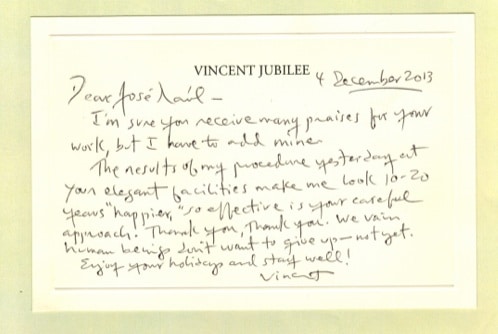 VINCENT JUBILEE
4 December 2013
Dear José Raúl –
I'm sure you receive many praises for your
work, but I have to add mine.
The results of my procedure yesterday at
your elegant facilities make me look 10-20
years "happier," so effective is your careful
approach! Thank you, Thank you. We vain
human beings don't want to give up — not yet.
Enjoy your holidays and stay well!
Vincent